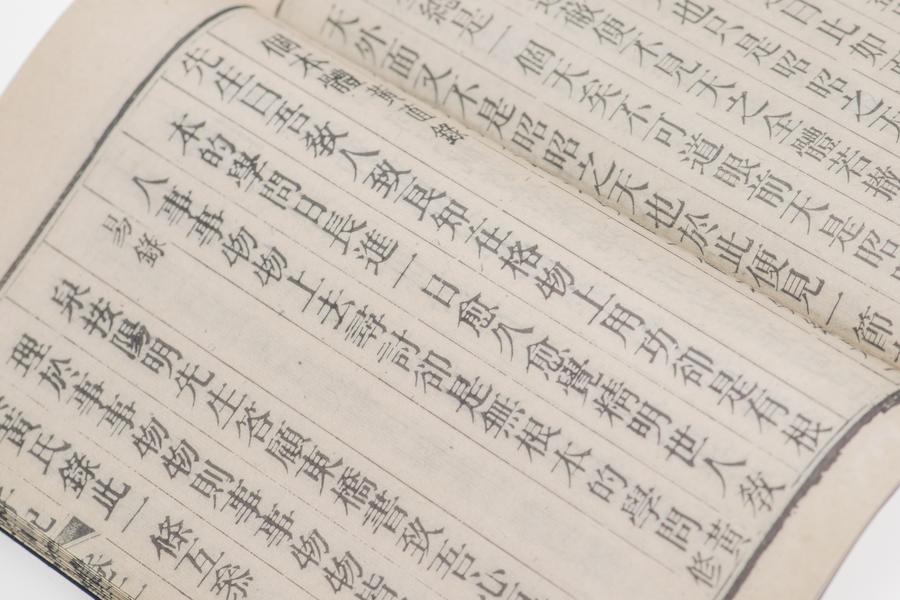 日此如
也只是昭昭之天
蔽便不見天之全體若撤
總是一個天矣不可道眼前天是昭
天外面又不是昭昭之天也於此便見一節
個本體黃直錄
先生曰吾教人致良知在格物上用功卻是有根
本的學問日長進一日愈久愈覺精明世人教
人事事物物上去尋討卻是無根本的學問黃修
易錄
泉按陽明先生答顧東橋書致吾心
理於事事物物則事事物物皆
黃氏錄此一條互參